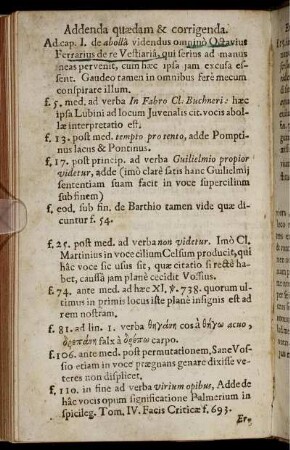 Addenda quædam & corrigenda.
Ad cap. I. de abollâ videndus omninò Octavius
Ferrarius de re Vestiariâ, qui serius ad manus
meas pervenit, cum hæc ipsa jam excusa es-
sent. Gaudeo tamen in omnibus ferè mecum
conspirare illum.
f. 5. med. ad verba In Fabro Cl. Buchneri: hæc
ipsa Lubini ad locum Juvenalis cit. vocis abol-
læ interpretatio est.
f. 13. post med. tempto pro tento, adde Pompti-
nus lacus & Pontinus.
f. 17. post princip. ad verba Guilielmio propior
videtur, adde (imò clarè satis hanc Guilielmij
sententiam suam facit in voce supercilium
sub finem)
f. eod. sub fin. de Barthio tamen vide quæ di-
cuntur f. 54.
f. 25. post med. ad verba non videtur. Imò Cl.
Martinius in voce cilium Celsum producit, qui
hâc voce sic usus sit, quæ citatio si rectè ha-
bet, caussâ jam planè cecidit Vossius.
f. 74. ante med. ad hæc XI. ℣. 738. quorum ul-
timus in primis locus iste planè insignis est ad
rem nostram.
f. 81. ad lin. 1. verba θηγάνη cos à θήγω acuo,
δρεπάνη falx à δρέπω carpo.
f. 106. ante med. post permutationem, Sane Vos-
sio etiam in voce prægnans genare dixisse ve-
teres non displicet.
f. 110. in fine ad verba virium opibus, Adde de
hâc vocis opum significatione Palmerium in
spicileg. Tom. IV. Facis Criticæ f. 693.